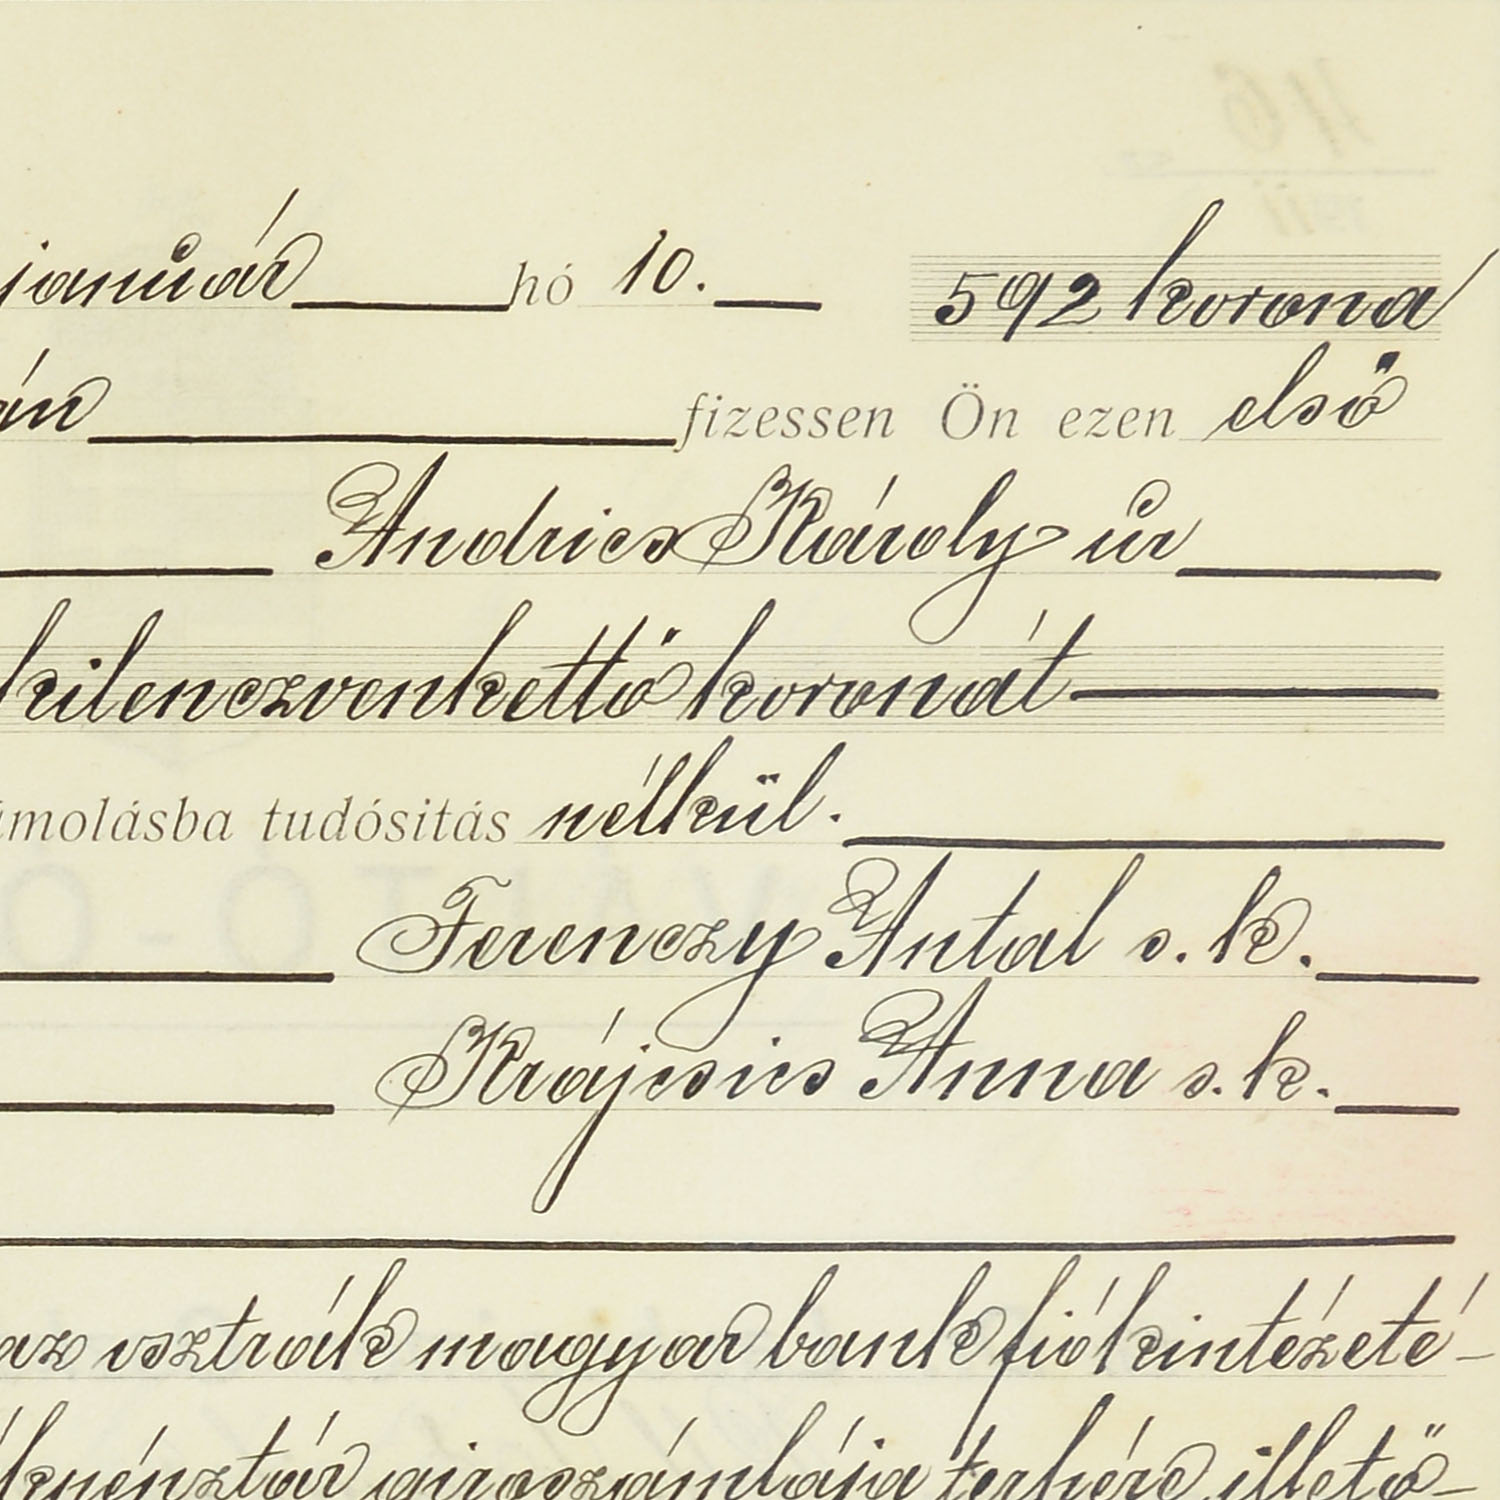 január hó 10. 592 korona
án fizessen Ön ezen első
Andrics Károly úr
kilenczvenkettő koronát
ámolásba tudósitás nélkül.
Ferenczy Antal s. k.
Krájcsics Anna s. k.
az osztrák magyar bank fiókintézeté-
girószámlája terhére illető-